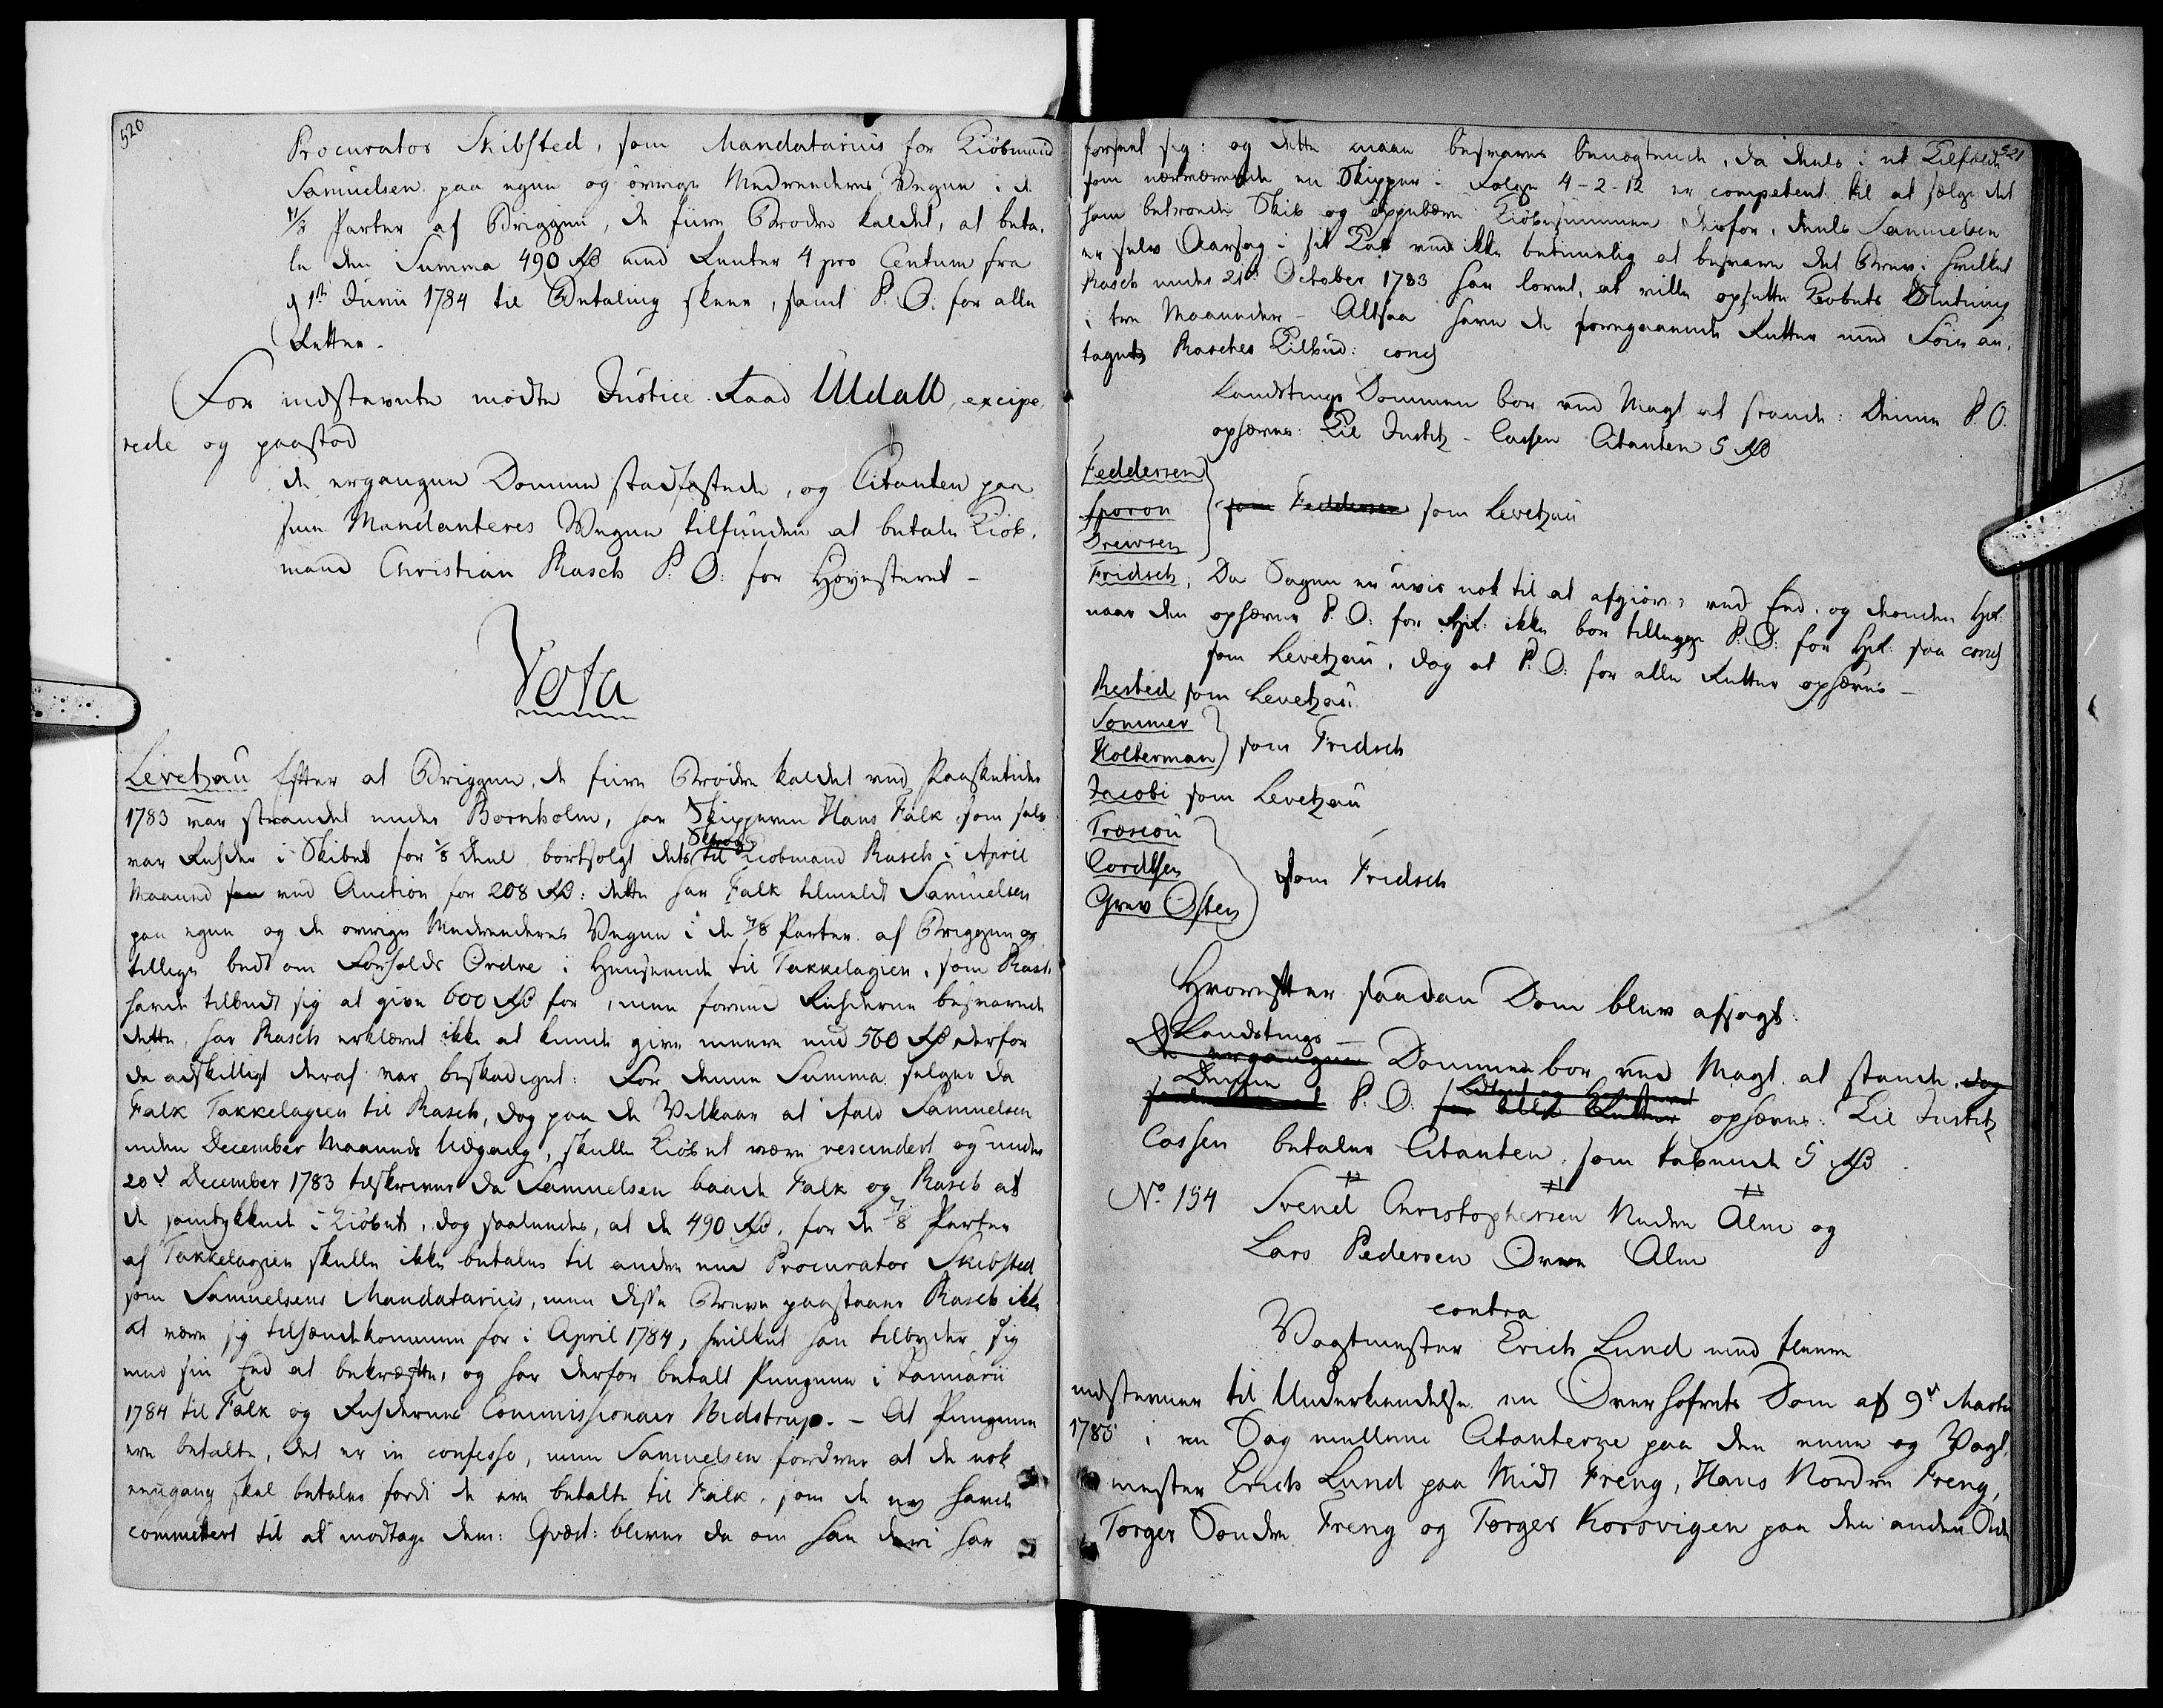 520
Procurator Skibsted, som Mandatarius for Kiöbmand
Samuelsen paa egne og övrige Medreederes Vegne i de
7/8 Parter af Briggen, de fiire Brödre kaldet, at beta-
le den Summa 490 Rd med Renter 4 pro Centum fra
d 1te Junii 1784 til Betaling skeer, samt P. O: for alle
Retter.
For indstevnte mödte Justice Raad Uldall, excipe-
rede og paastod
de ergangne Domme stadfæstede, og Citanten paa
sine Mandanteres Vegne tilfunden at betale Kiöb-
mand Christian Rasch P. O: for Höyesteret -
Vota
Levetzau Efter at Briggen, de fiire Brödre kaldet ved Paasketider
1783 var strandet under Bornholm, har Skipperen Hans Falk, som selv
var Rehder i Skibet for 1/8 Deel bortsolgt dets Skrog til Kiobmand Rasch i April
Maaned ved Auction for 208 Rd: dette har Falk tilmeldt Samuelsen
paa egne og de övrige Medreederes Vegne i de 7/8 Parter af Briggen og
tillige bedt om Forholds Ordre i Henseende til Takkelagien, som Rasch
havde tilbudt sig at give 600 Rd for, men forend Rehderne besvarede
dette, har Rasch erklæret ikke at kunde give meere end 560 Rd derfor
da adskilligt deraf var beskadiget: For denne Summa selger da
Falk Takkelagien til Rasch, dog paa de Vilkaar at ifald Samuelsen
inden December Maaneds Udgang, skulle Kiöbet være rescindert og under
20d December 1783 tilskriver da Samuelsen baade Falk og Rasch at
de samtykkede i Kiöbet, dog saaledes, at de 490 Rd, for de 7/8 Parter
af Takkelagien skulle ikke betales til anden end Procurator Skibsted
som Samuelsens Mandatarius, men disse Breve paastaaer Rasch ikke
at være sig tilhændekommen for i April 1784, hvilket han tilbyder sig
med sin Eed at bekræfte, og har derfor betalt Pengene i Januarii
1784 til Falk og Rehdernes Commissionair Bidstrup. - At Pengene
ere betalte, det er in confesso, men Samuelsen fordrer at de nok
eengang skal betales fordi de ere betalte til Falk, som de ey havde
committert til at modtage dem: Qvæst: bliver da om han deri har
521
forseet sig: og dette maae besvares benægtende, da deels i et Tilfælde
som nærværende en Skipper i Folge 4-2-12 er competent til at sælge det
ham betroede Skib og oppebære Kiöbesummen derfor, deels Samuelsen
er selv Aarsag i sit Tab ved ikke betimelig at besvare det Brev i hvilket
Rasch under 21de October 1783 har lovet, at ville opsette Kiobets Slutning
i tre Maaneder - Altsaa have de foregaaende Retter med Föie an-
tagets Rasches Tilbud: concl
Landstings Dommen bor ved Magt at stande: Denne P. O.
ophæves: Til Justitz-Cassen Citanten 5 Rd
Feddersen
Sporon
Drewsen
som Feddersen som Levetzau
Fridsch, Da Sagen er uvis nok til at afgiöres ved Eed, og
naar den ophæver P. O: for ikke bor tillegge P. O: for saa concl
som Levetzau, dog at P. O: for alle Retter ophæves -
Rested som Levetzau
Sommer
Kolterman
som Fridsch
Jacobi som Levetzau
Træscou
Cordtsen
Grev Osten
som Fridsch
Hvorefter saadan Dom blev afsagt:
Landstings
De ergangne Dommen bor ved Magt at stande, dog
Denne P. O. for alle Retter ophæves: Til Justitz
Cassen betaler Citanten, som tabende 5 Rd.
No 154 Svend Christophersen Nedre Alm og
Lars Pedersen Övre Alm
contra
Vagtmester Erich Lund med fleere
indstevner til Underkiendelse en Over Hofrets Dom af 9d Martii
1785 i en Sag mellem Citanterne paa den eene og Vagt-
mester Erich Lund paa Midt Freng, Hans Nordre Freng,
Torger Söndre Freng og Torger Korsvigen paa den anden Side